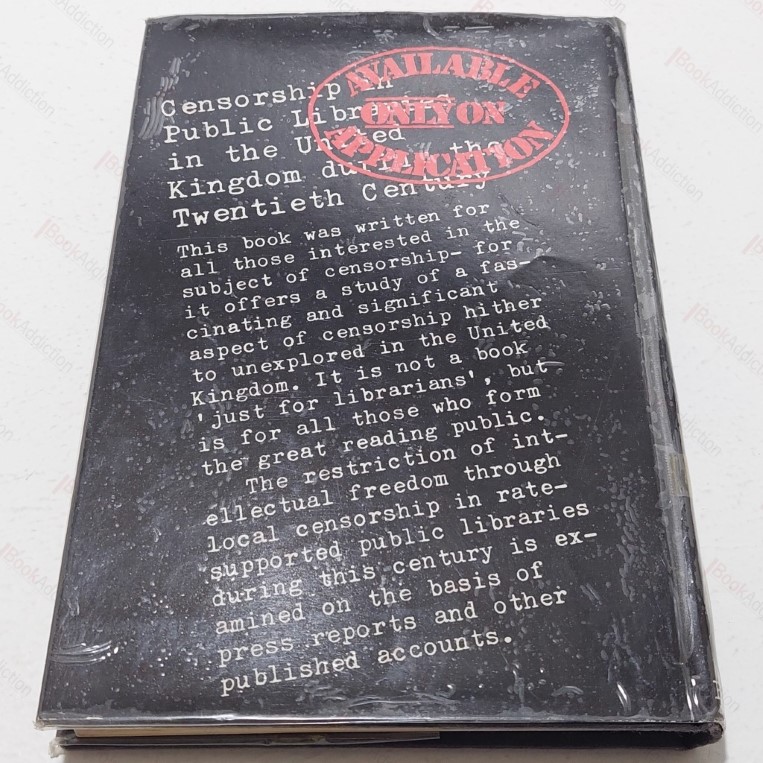 Censorship in
Public Libraries
in the United
Kingdom during the
Twentieth Century
AVAILABLE
ONLY ON
APPLICATION
This book was written for
all those interested in the
subject of censorship- for
it offers a study of a fas-
cinating and significant
aspect of censorship hither
to unexplored in the United
Kingdom. It is not a book
'just for librarians', but
is for all those who form
the great reading public.
The restriction of int-
ellectual freedom through
local censorship in rate-
supported public libraries
during this century is ex-
amined on the basis of
press reports and other
published accounts.
BookAddiction